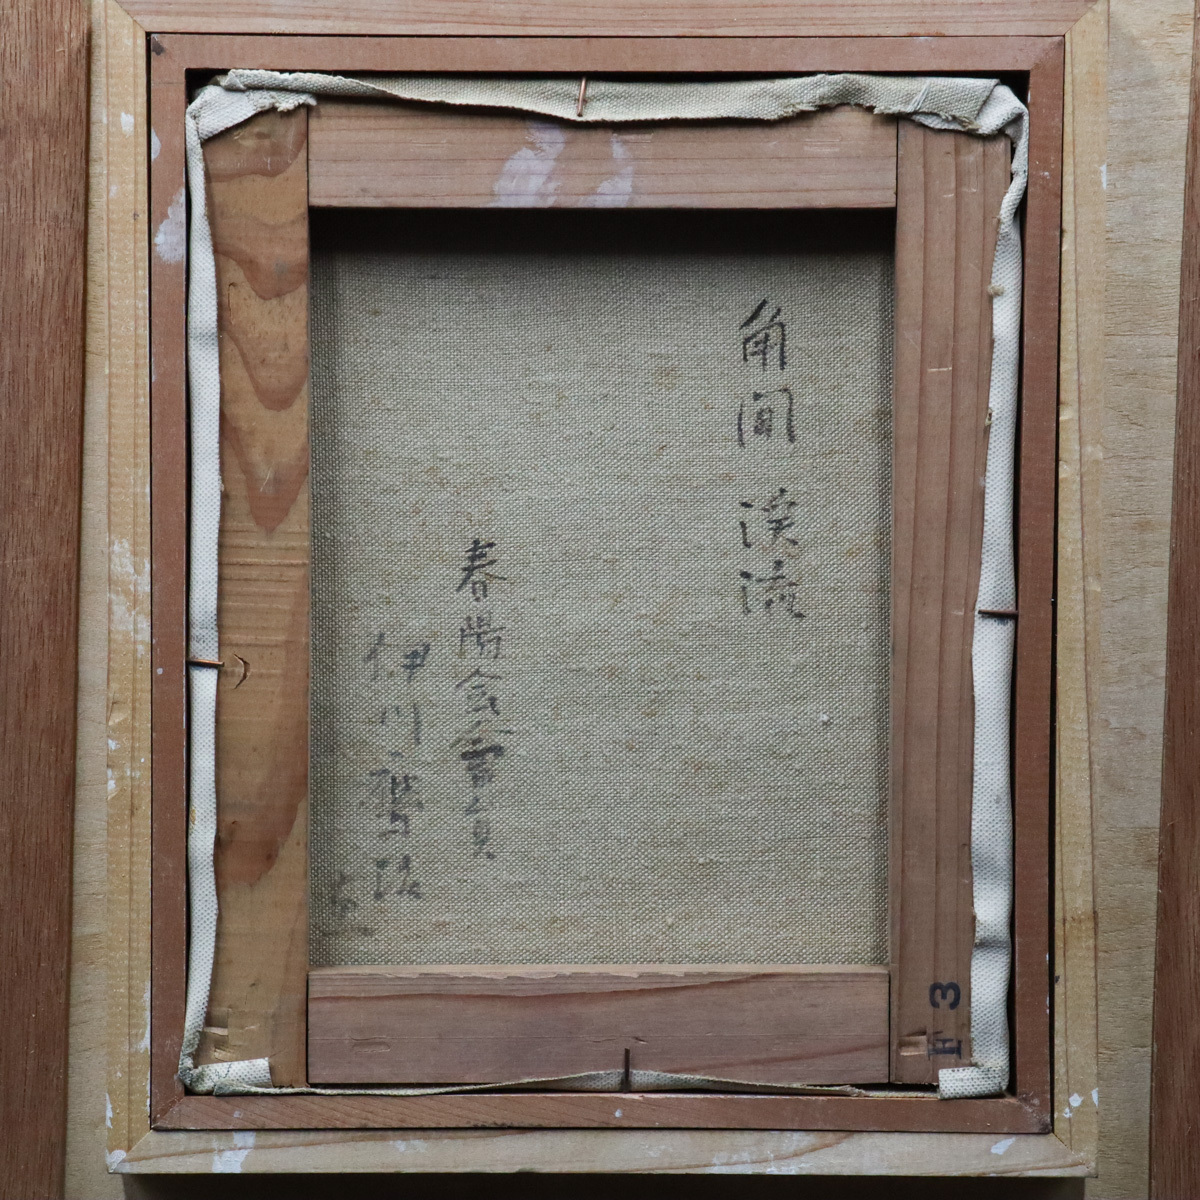 角間 渓流
春陽会会員
伊川鷹治
F3